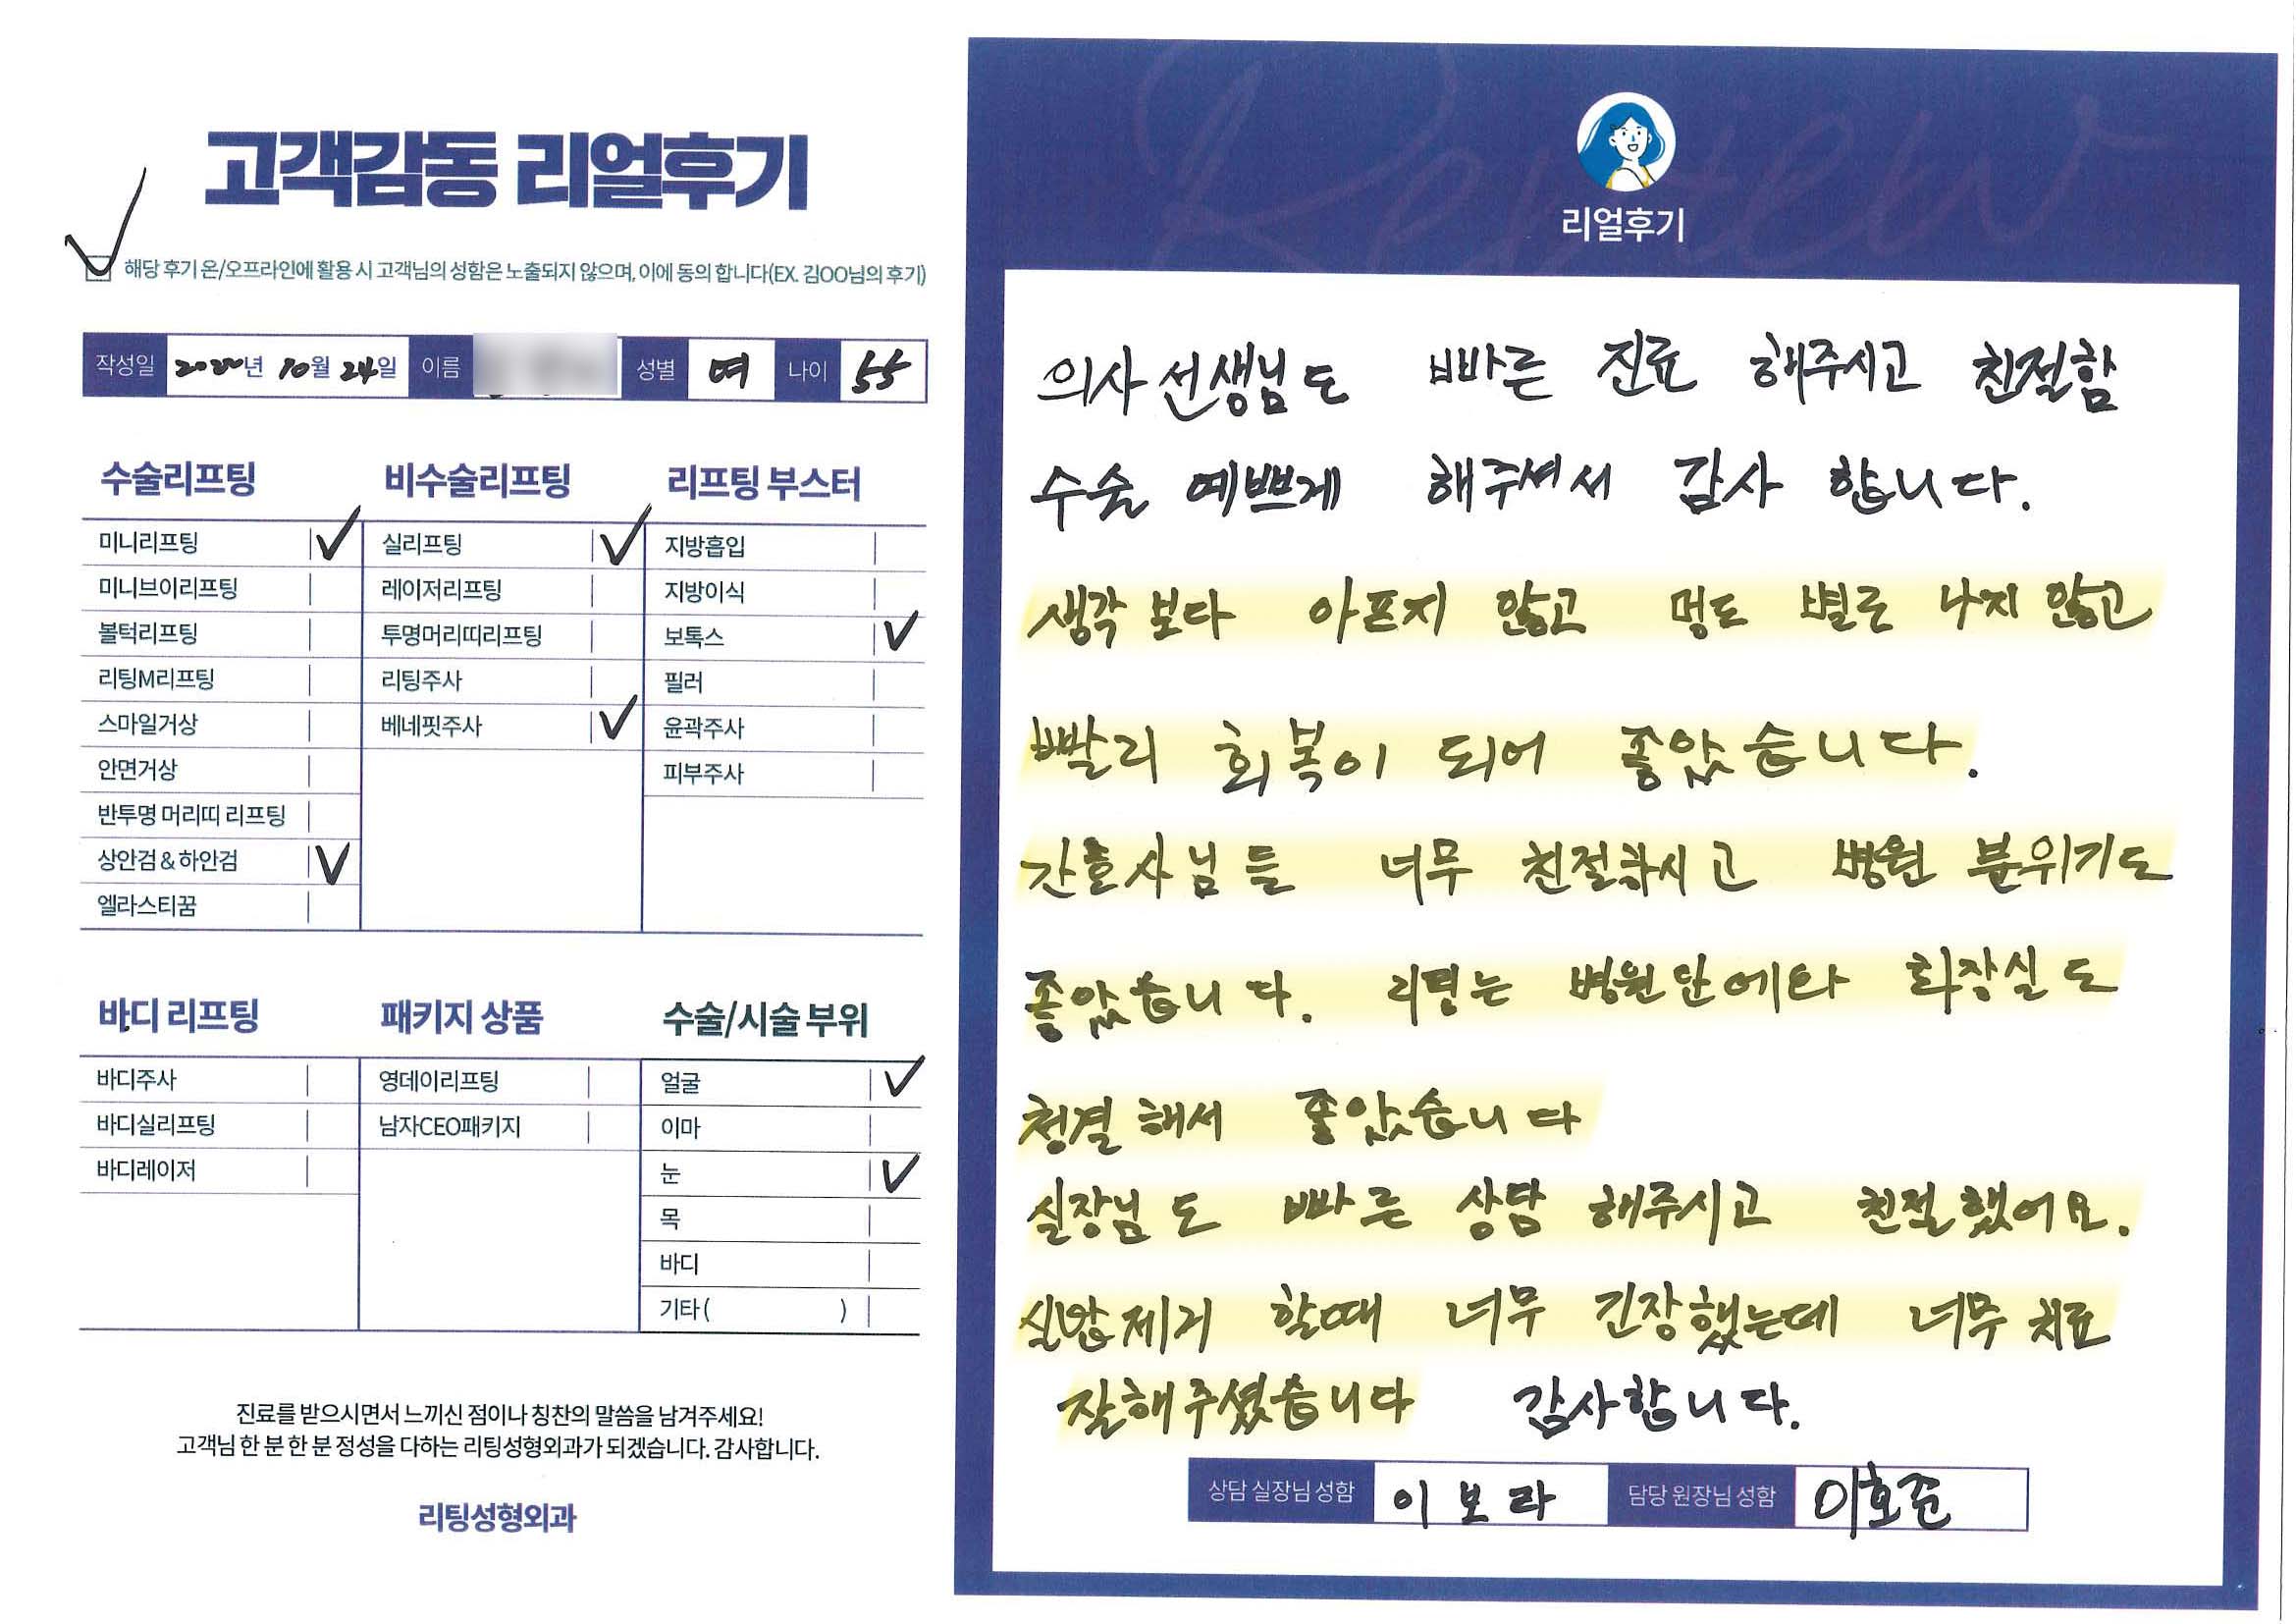 고객감동 리얼후기
해당 후기 온/오프라인에 활용 시 고객님의 성함은 노출되지 않으며, 이에 동의 합니다(EX. 김OO님의 후기)
작성일 2020년 10월 24일 이름 성별 여 나이 55
수술리프팅
미니리프팅
미니브이리프팅
볼턱리프팅
리팅M리프팅
스마일거상
안면거상
반투명 머리띠 리프팅
상안검 & 하안검
엘라스티꿈
비수술리프팅
실리프팅
레이저리프팅
투명머리띠리프팅
리팅주사
베네핏주사
리프팅 부스터
지방흡입
지방이식
보톡스
필러
윤곽주사
피부주사
바디 리프팅
바디주사
바디실리프팅
바디레이저
패키지 상품
영데이리프팅
남자CEO패키지
수술/시술 부위
얼굴
이마
눈
목
바디
기타 ( )
진료를 받으시면서 느끼신 점이나 칭찬의 말씀을 남겨주세요!
고객님 한 분 한 분 정성을 다하는 리팅성형외과가 되겠습니다. 감사합니다.
리팅성형외과
Review
리얼후기
의사선생님도 빠른 진료 해주시고 친절함
수술 예쁘게 해주셔서 감사 합니다.
생각보다 아프지 않고 멍도 별로 나지 않고
빨리 회복이 되어 좋았습니다.
간호사님들 너무 친절하시고 병원 분위기도
좋았습니다. 화장실도
청결해서 좋았습니다
실장님도 빠른 상담 해주시고 친절했어요.
실밥제거 할때 너무 긴장했는데 너무 치료
잘해주셨습니다 감사합니다.
상담 실장님 성함 이보라 담당 원장님 성함 이호준